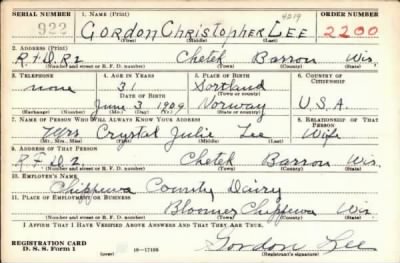 SERIAL NUMBER 1. NAME (Print) ORDER NUMBER
922 Gordon Christopher Lee 2200
(First) (Middle) (Last)
2. ADDRESS (Print)
R.F.D. R2 Chetek Barron Wis.
(Number and street or R. F. D. number) (Town) (County) (State)
3. TELEPHONE 4. AGE IN YEARS 5. PLACE OF BIRTH 6. COUNTRY OF CITIZENSHIP
none 31 Sortland
DATE OF BIRTH (Town or county)
June 3 1909 Norway U.S.A.
(Exchange) (Number) (Mo.) (Day) (Yr.) (State or country)
7. NAME OF PERSON WHO WILL ALWAYS KNOW YOUR ADDRESS 8. RELATIONSHIP OF THAT PERSON
Mrs Crystal Julie Lee Wife
(Mr., Mrs., Miss) (First) (Middle) (Last)
9. ADDRESS OF THAT PERSON
R.F.D. 2. Chetek Barron Wis.
(Number and street or R. F. D. number) (Town) (County) (State)
10. EMPLOYER'S NAME
Chippewa County Dairy
11. PLACE OF EMPLOYMENT OR BUSINESS
Bloomer Chippewa Wis
(Number and street or R. F. D. number) (Town) (County) (State)
I AFFIRM THAT I HAVE VERIFIED ABOVE ANSWERS AND THAT THEY ARE TRUE.
REGISTRATION CARD
D. S. S. Form 1 (over) Gordon Lee
(Registrant's signature)